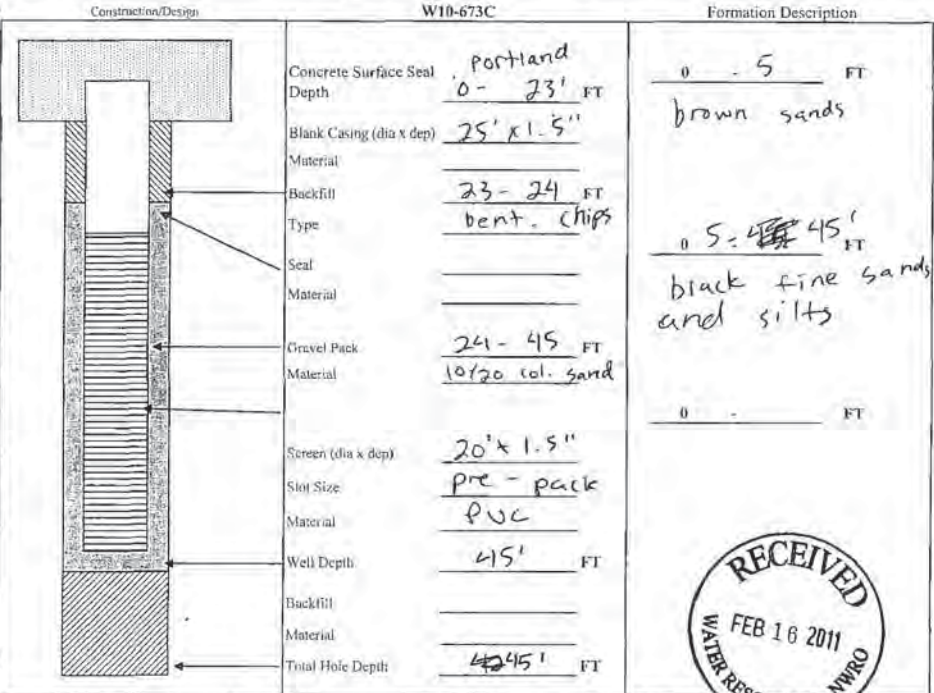 Construction/Design
W10-673C
Formation Description
Portland
Concrete Surface Seal
Depth 0 - 23' FT
Blank Casing (dia x dep) 25' x 1.5"
Material
Backfill 23 - 24 FT
Type bent. chips
Seal
Material
Gravel Pack 24 - 45 FT
Material 10/20 col. sand
Screen (dia x dep) 20' x 1.5"
Slot Size pre - pack
Material PVC
Well Depth 45' FT
Backfill
Material
Total Hole Depth 45' FT
0 - 5 FT
brown sands
0 5 - 45' FT
black fine sands
and silts
0 - FT
RECEIVED
FEB 16 2011
WATER RES
NWRO